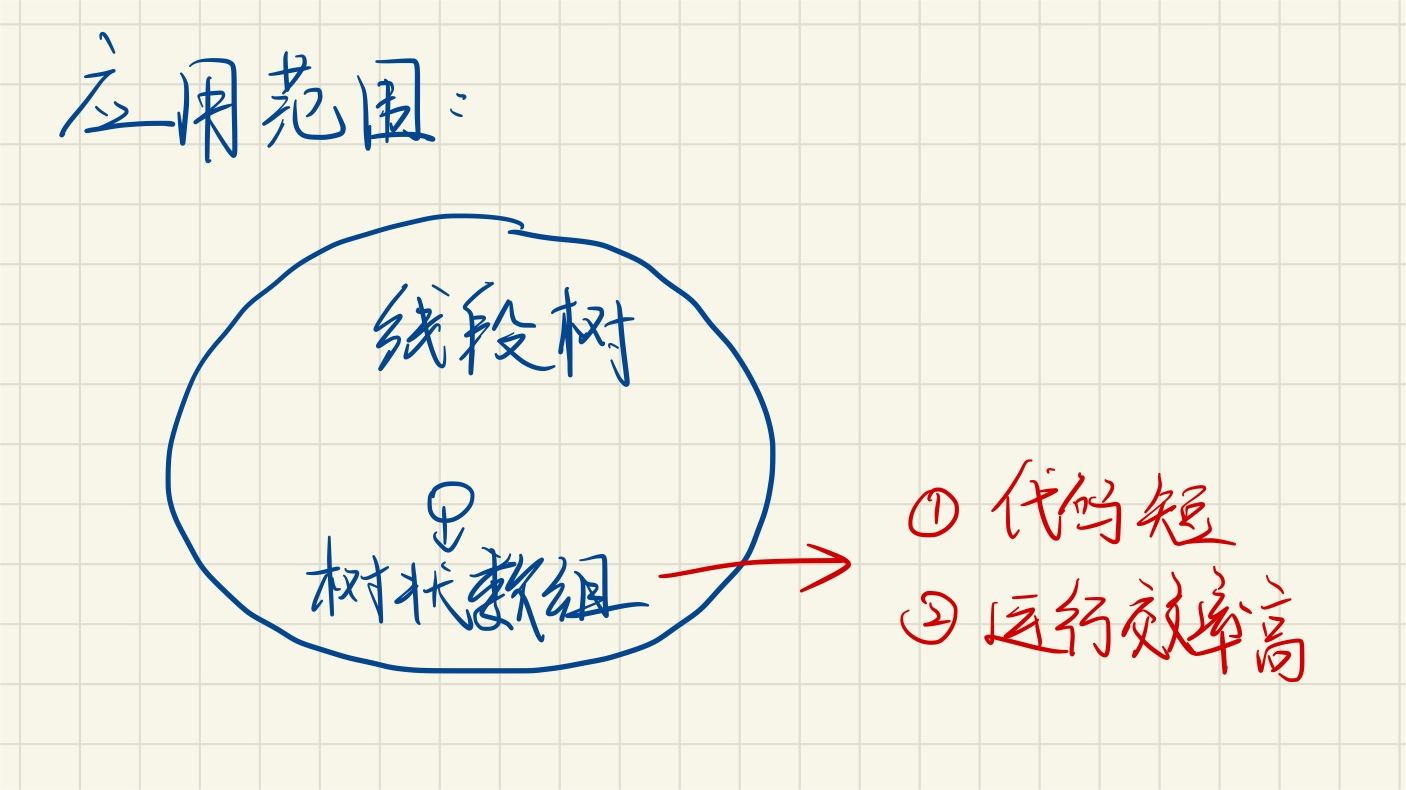 应用范围：
线段树
树状数组
① 代码短
② 运行效率高